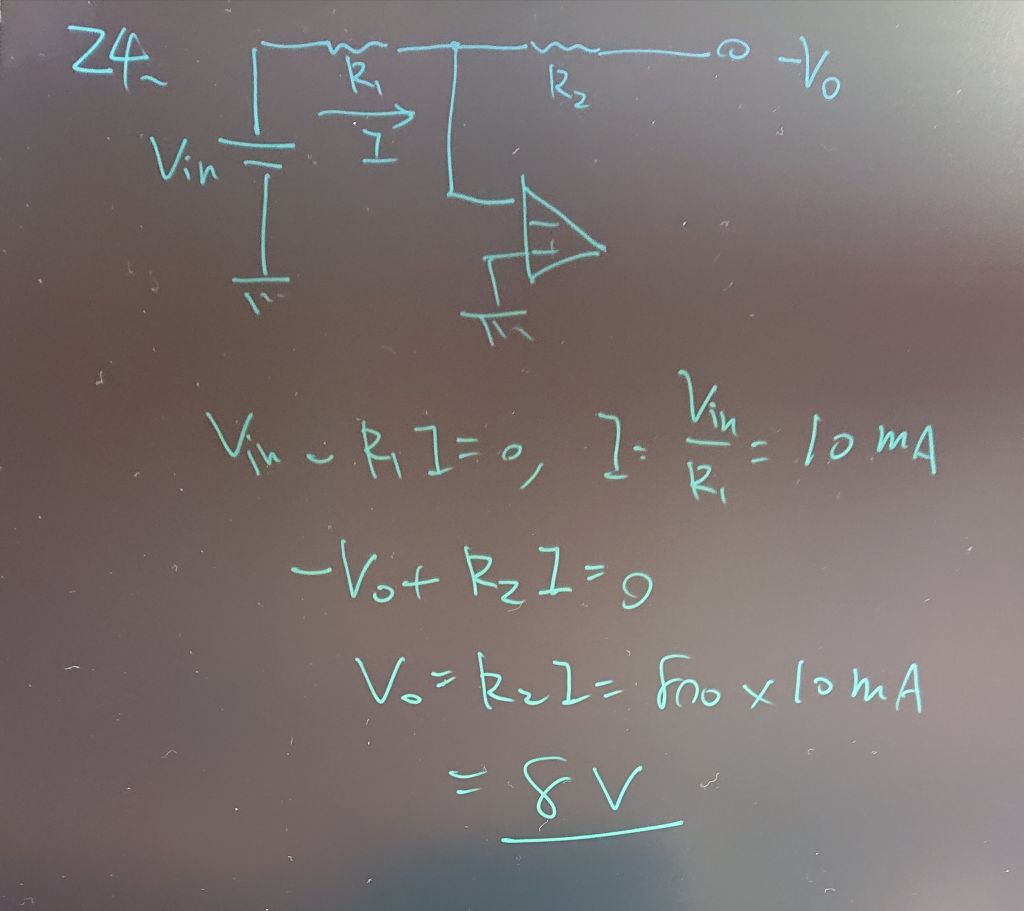 24.
R₁
R₂
-V₀
I
Vin
−
+
Vin - R₁I=0, I= Vin/R₁ = 10 mA
-V₀+ R₂I=0
V₀= R₂I= 800 × 10 mA
= 8 V